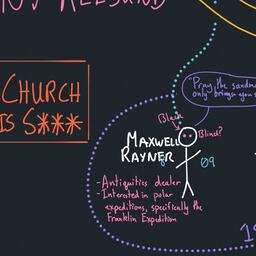 CHURCH
IS S***
"Pray, the
only brings you
Black
Blind?
MAXWELL
RAYNER
09
- Antiquities dealer
- Interested in polar
expeditions, specifically the
Franklin Expedition